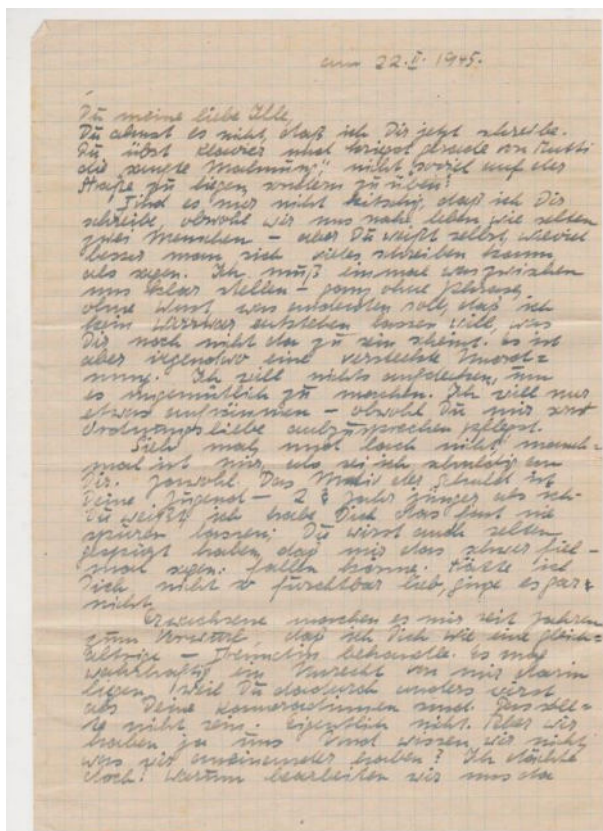 am 22.V. 1945.
Du meine liebe Ille,
Du ahnst es nicht, daß ich Dir jetzt schreibe.
Du übst Klavier und kriegst gerade von Mutti
die Mahnung, "nicht soviel auf der
zu liegen sondern zu üben!"
Find es nur nicht kitschig, daß ich Dir
schreibe, obwohl wir uns nahe leben, wie selten
zwei Menschen – aber Du weißt selbst, wieviel
besser man sich vieles schreiben kann,
als sagen. Ich muß einmal was zwischen
uns klar stellen – ganz ohne Phrase,
ohne was andeuten soll, daß ich
kein Wirrwar entstehen lassen will, was
Dir noch nicht da zu sein scheint. Es ist
aber irgendwo eine versteckte Unord=
nung. Ich will nichts aufdecken, um
es ungemütlich zu machen. Ich will nur
etwas aufräumen – obwohl Du mir
Ordnungsliebe abzusprechen pflegst.
Sieh mal, und lach nicht: manch=
mal ist mir, als sei ich schuldig an
Dir. Jawohl. Das Motiv der Schuld ist
Deine Jugend – 2 Jahr jünger als ich.
Du weißt, ich habe Dich das fast nie
spüren lassen; Du wirst auch selten
gespürt haben, daß mir das schwer fiel –
mal sagen: fallen konnte. Hätte ich
Dich nicht so furchtbar lieb, ginge es gar
nicht.
Erwachsene machen es mir seit Jahren
zum Vorwurf, daß ich Dich wie eine gleich=
altrige – Freundin behandle. Es mag
wahrhaftig ein Unrecht von mir darin
liegen, weil Du dadurch anders wirst
als Deine Kameradinnen sind. Das soll=
te nicht sein. Eigentlich nicht. Aber wir
haben ja uns. Und wissen wir nicht,
was wir aneinander haben? Ich dächte
doch! Warum bearbeiten wir uns da